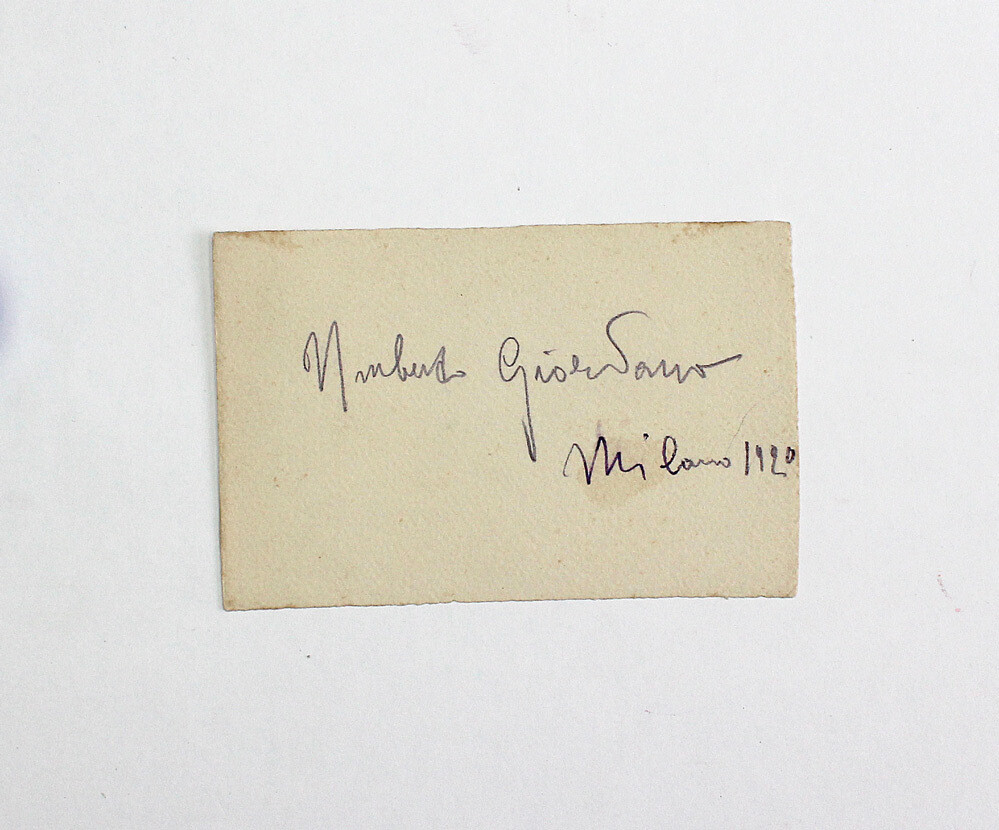 Umberto Giordano
Milano 1920